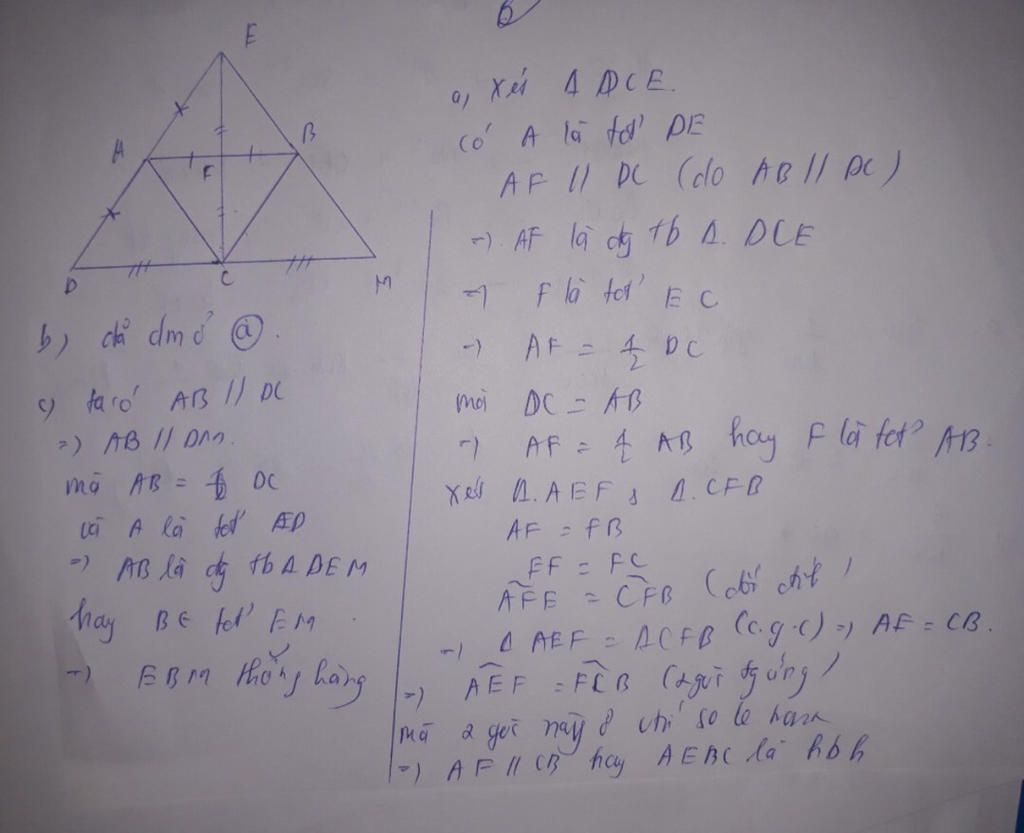 6
E
A
B
F
D
C
M
a, xét Δ DCE.
có A là tđ' DE
AF // DC (do AB // DC)
=) AF là đg tb Δ. DCE
=) F là tđ' EC
=) AF = 1/2 DC
mà DC = AB
=) AF = 1/2 AB hay F là tđ' AB.
xét Δ.AEF, Δ.CFB
AF = FB
EF = FC
AFE = CFB (đối đỉnh)
=) Δ AEF = Δ CFB (c.g.c) =) AE = CB.
=) AEF = FCB (2 góc tg ứng)
mà 2 góc này ở vtrí so le
=) AF // CB hay AEBC là hbh
b) đã cm ở a.
c) ta có AB // DC
=) AB // DM.
mà AB = DC
và A là tđ' ED
=) AB là đg tb Δ DEM
hay B ∈ tđ' EM
=) EBM thẳng hàng